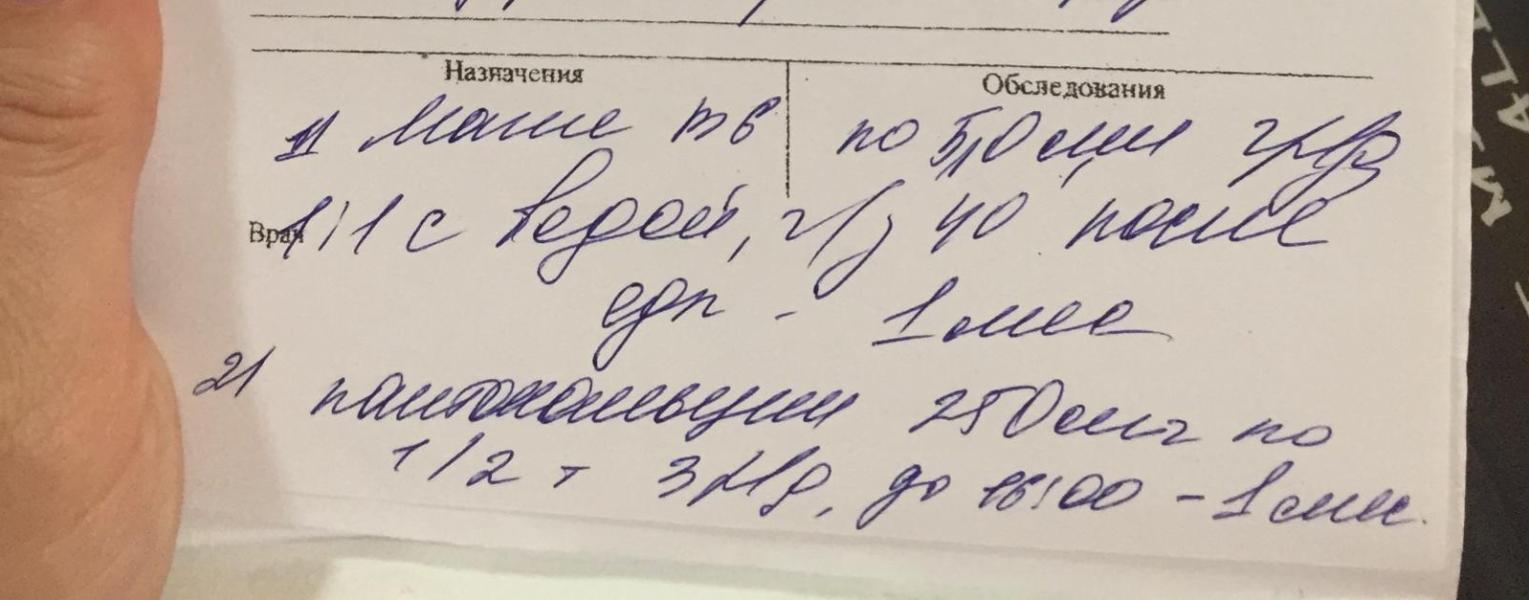 Назначения Обследования
1) Магне В6 по 5,0 мл
Врач 1:1 с водой, ч/з 40 после
еды - 1 мес
2) пантокальцин 250 мг по
1/2 т 3 р/д, до 16:00 - 1 мес.